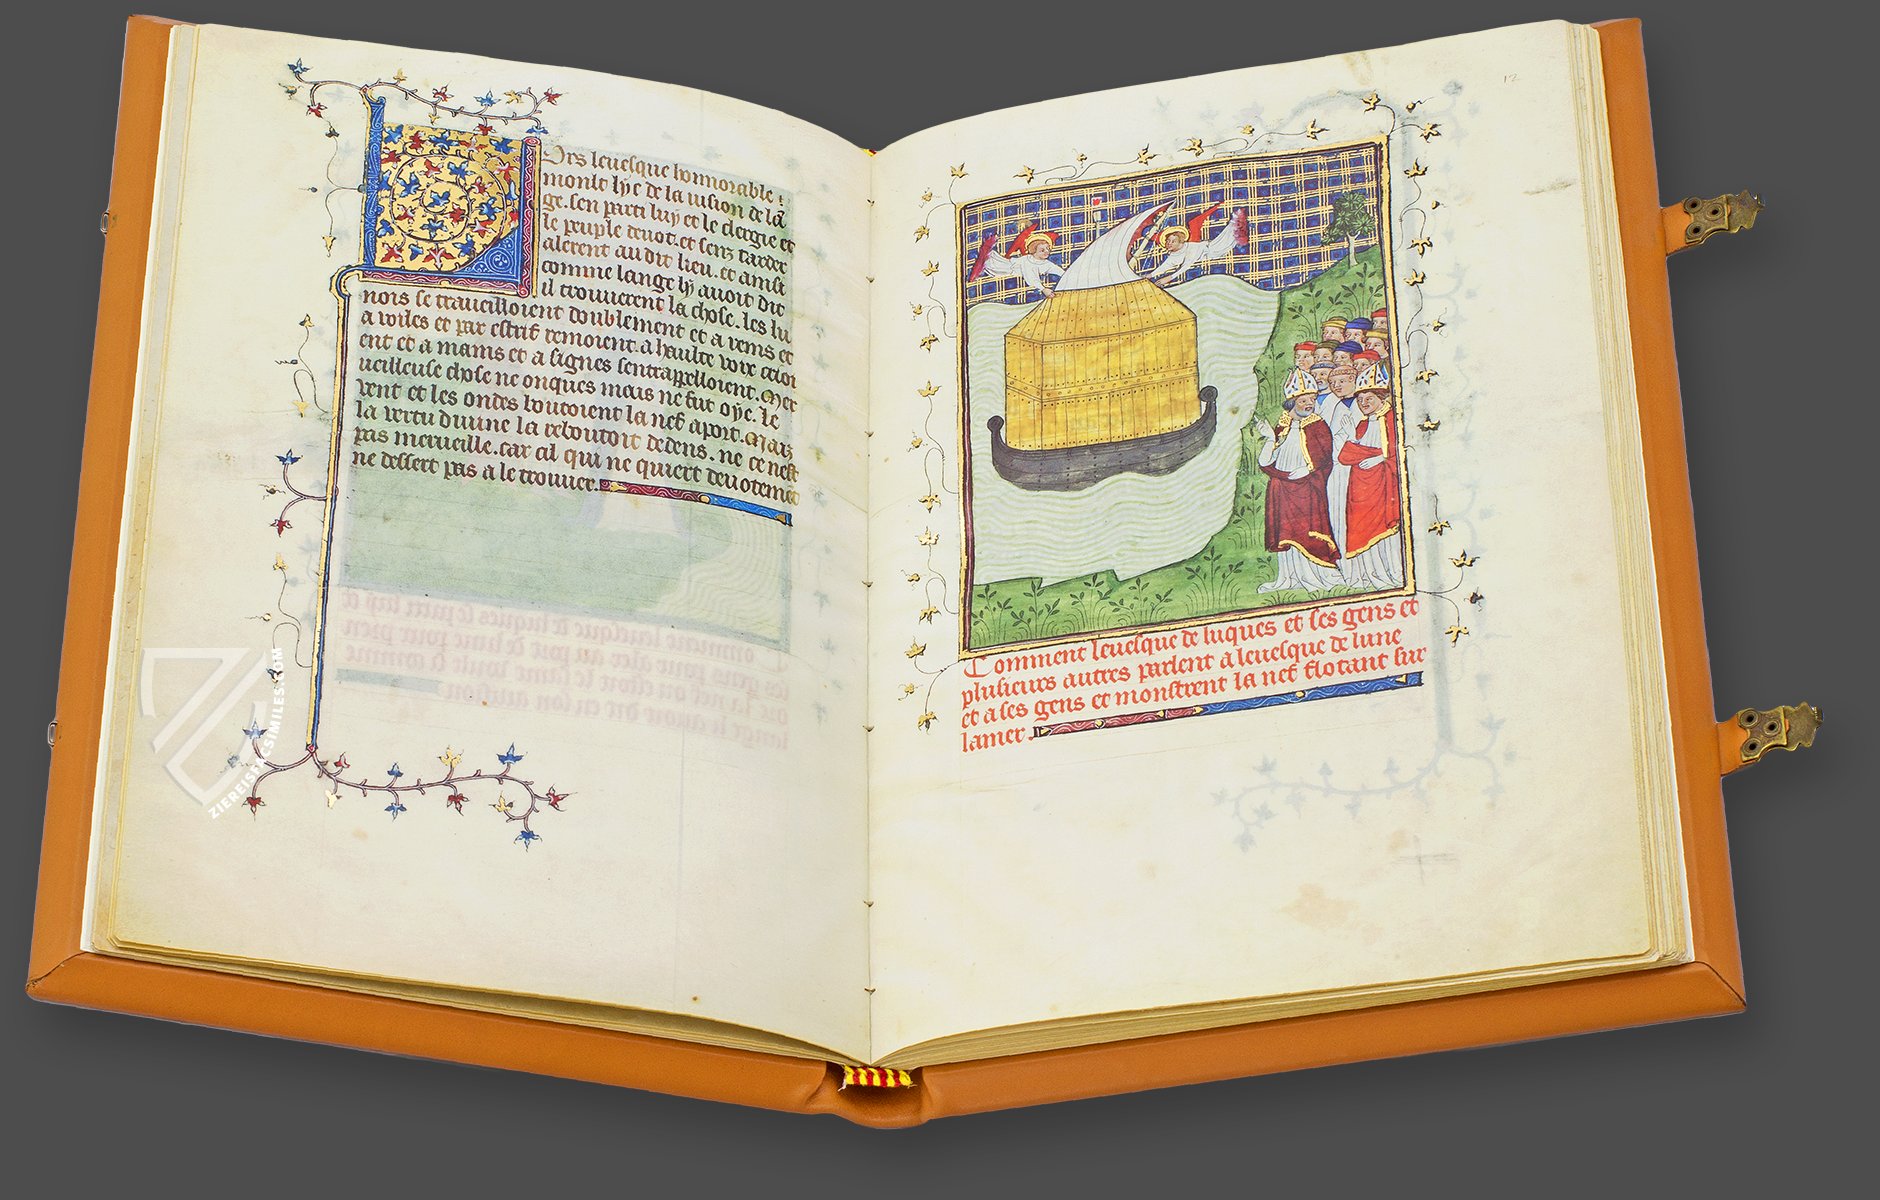 Ors leuesque honnorable :
moult lye de la uision de lā
ge. sen parti luy et le clergie et
le peuple deuot. et sens tarder
alerent au dit lieu. et ainsi
comme lange ly auoit dit
il trouuerent la chose. les lu
nois se traueilloient doublement et a rems et
a voiles et par estrif remoient. a haulte voix
ent et a mains et a signes sentrappelloient. Mer
ueilleuse chose ne onques mais ne fut oye. Le
vent et les ondes boutoient la nef a port. Mais
la vertu diuine la reboutoit dedens. ne ce nest
pas merueille. car cil qui ne quiert deuotemēt
ne dessert pas a le trouuer.
ZIEREISFACSIMILES.COM
12
Comment leuesque de luques et ses gens et
plusieurs autres parlent a leuesque de lune
et a ses gens et monstrent la nef flotant sur
lamer.